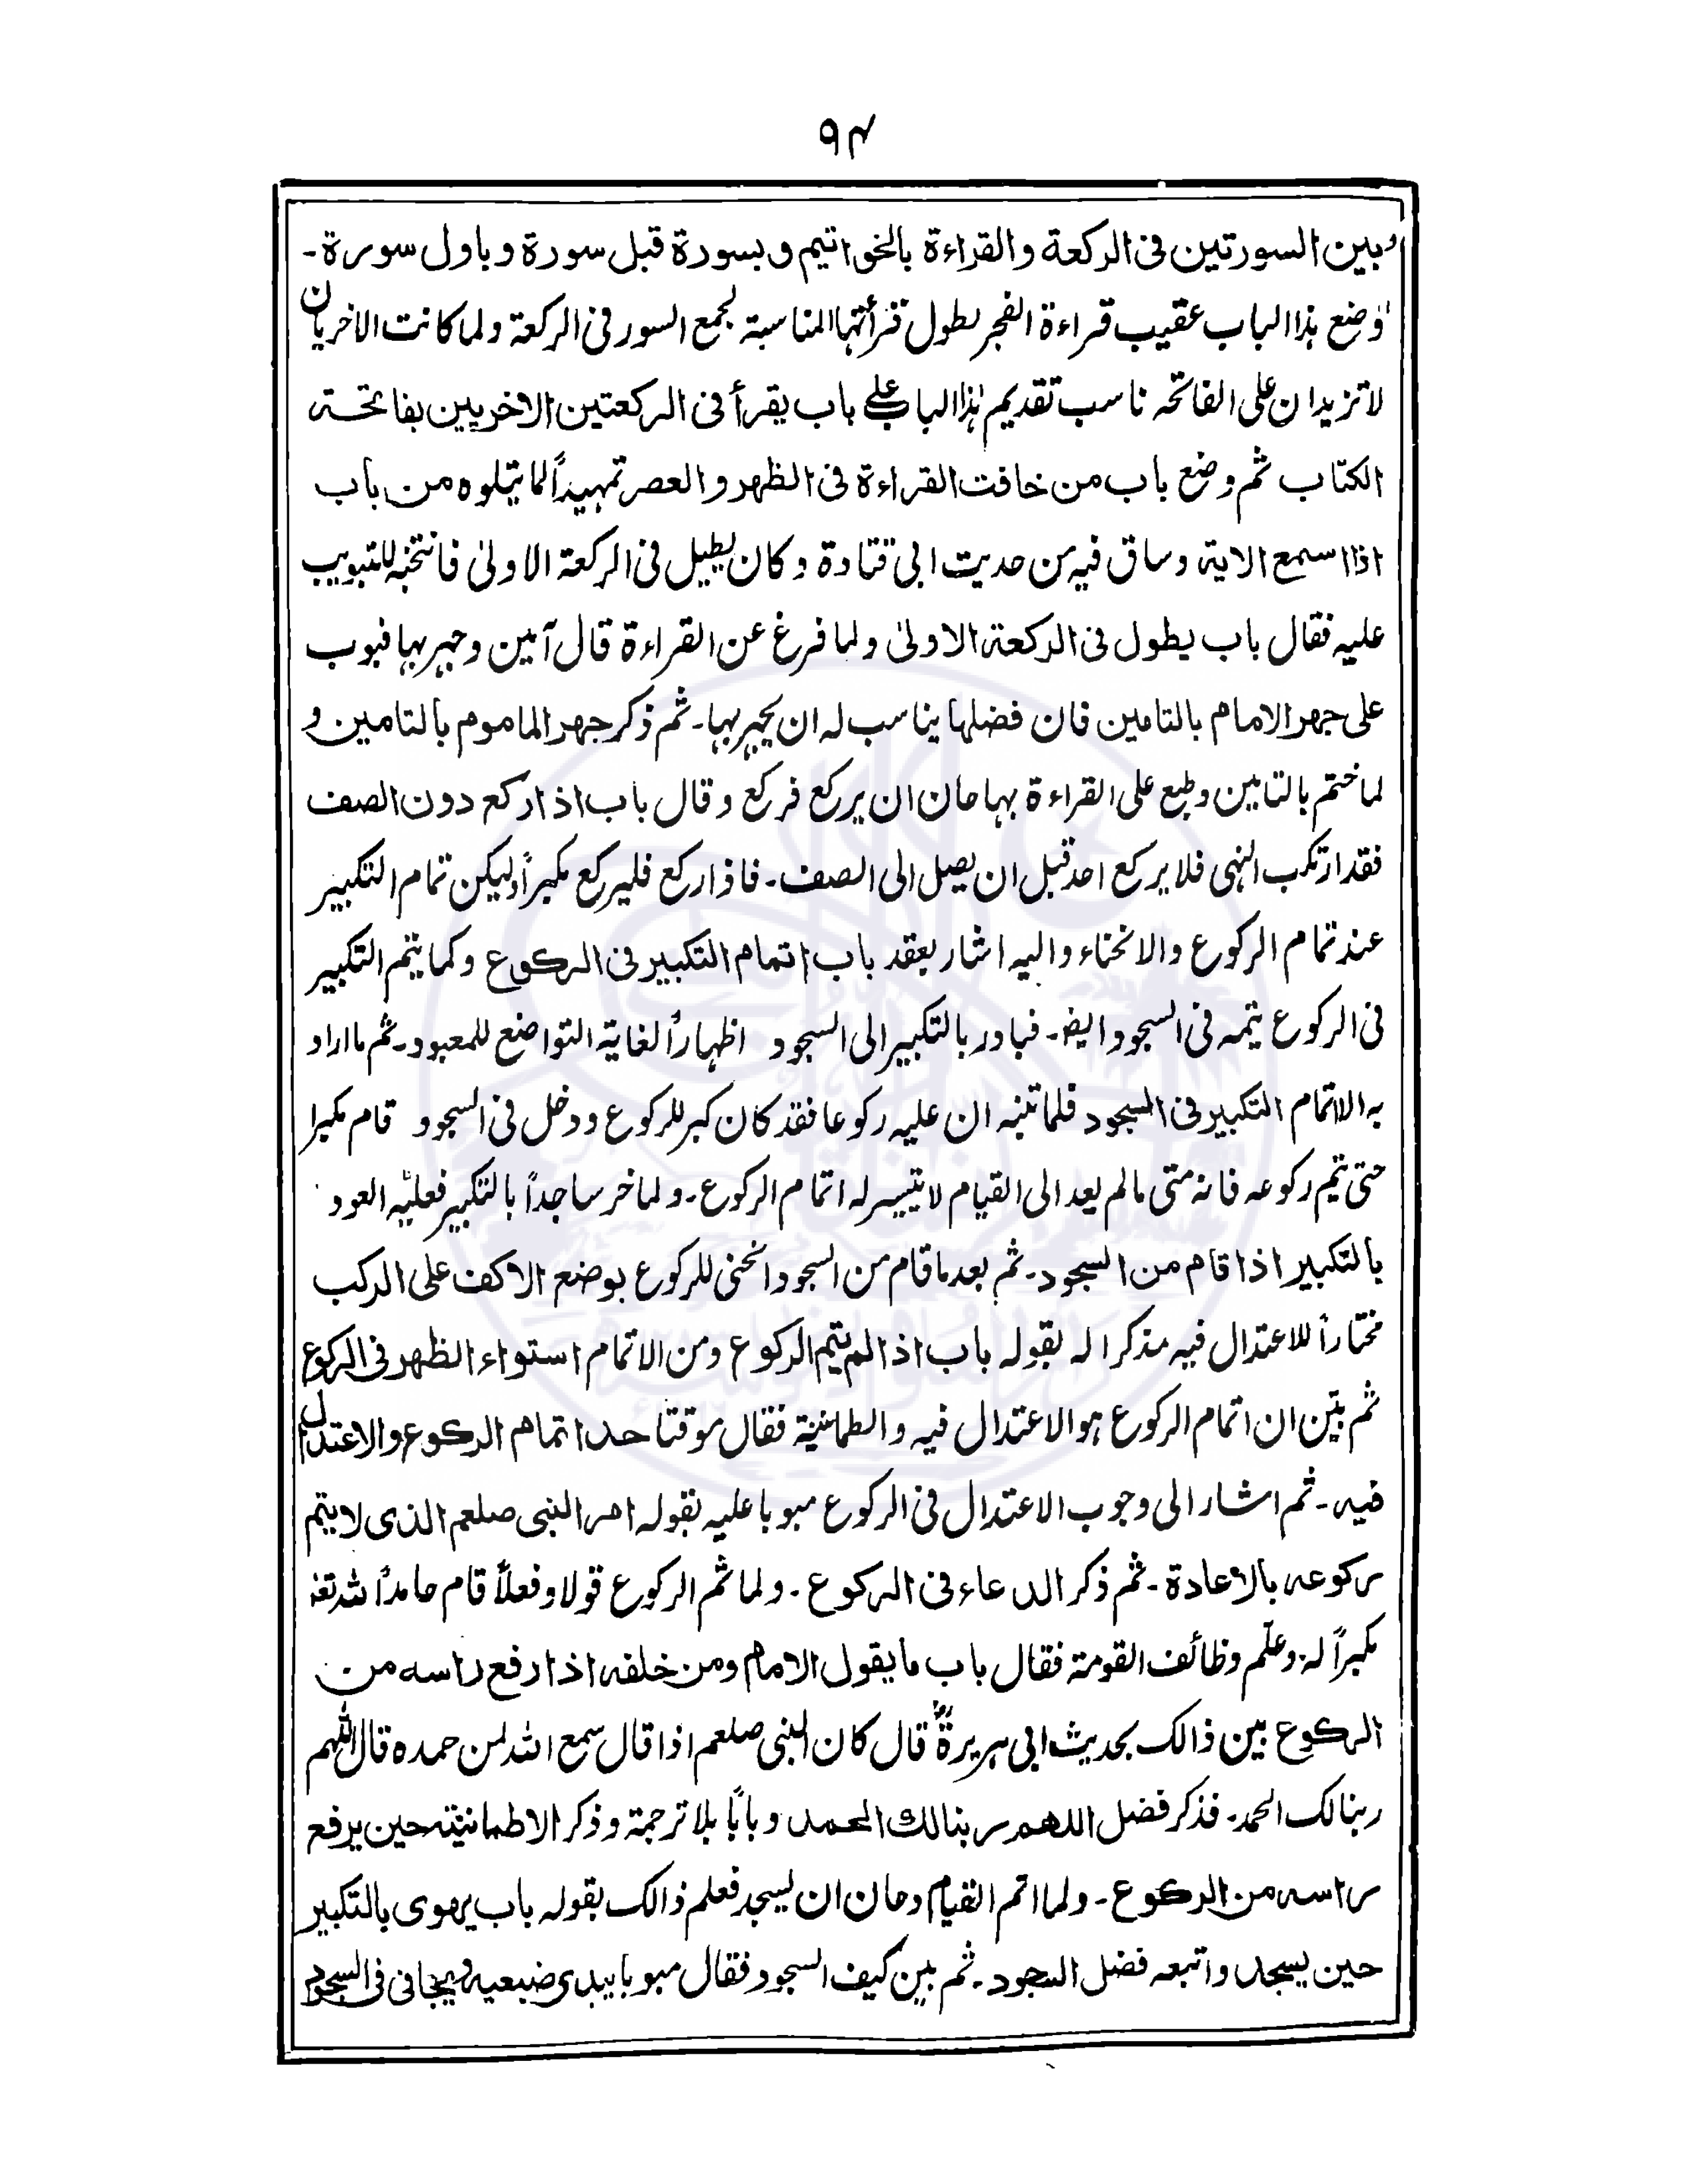 ٩٣
وبين السورتين فى الركعة والقراءة بالخواتيم وبسورة قبل سورة وباول سورة۔
وضع ہذا الباب عقيب قراءة الفجر لطول قرأتها المناسبة لجمع السور فى الركعة ولما كانت الاخريان
لا تزيدان على الفاتحہ ناسب تقديم ہذا الباب علے باب يقرأ فى الركعتين الاخريين بفاتحۃ
الكتاب ثم وضع باب من خافت القراءة فى الظهر والعصر تمهيداً لما يتلوه من باب
اذا اسمع الاية وساق فيه من حديث ابى قتادة وكان يطيل فى الركعة الاولىٰ فانتخبه للتبويب
عليه فقال باب يطول فى الركعة الاولىٰ ولما فرغ عن القراءة قال آمين وجهر بها فبوب
على جهر الامام بالتامين فان فضلها يناسب له ان يجهر بها۔ ثم ذكر جهر الماموم بالتامين و
لما ختم بالتامين وطبع على القراءة بها حان ان يركع فركع وقال باب اذا ركع دون الصف
فقد ارتكب النهى فلا يركع احد قبل ان يصل الى الصف۔ فاذا ركع فليركع مكبراً وليكن تمام التكبير
عند تمام الركوع والانحناء واليه اشار بعقد باب اتمام التكبير فى الركوع وكما يتم التكبير
فى الركوع يتمه فى السجود ايضا۔ فبادر بالتكبير الى السجود اظهاراً لغاية التواضع للمعبود۔ ثم ما اراد
به الا اتمام التكبير فى السجود فلما تنبه ان عليه ركوعا فقد كان كبر للركوع ودخل فى السجود قام مكبرا
حتى يتم ركوعه فانه متى ما لم يعد الى القيام لا يتيسر له اتمام الركوع۔ ولما خر ساجداً بالتكبير فعليه العود
بالتكبير اذا قام من السجود۔ ثم بعد ما قام من السجود انحنى للركوع بوضع الاكف على الركب
مختاراً للاعتدال فيه مذكرا له بقوله باب اذا لم يتم الركوع ومن الاتمام استواء الظهر فى الركوع
ثم بيّن ان اتمام الركوع ہو الاعتدال فيه والطمانينة فقال موقتا حد اتمام الركوع والاعتدال
فيه۔ ثم اشار الى وجوب الاعتدال فى الركوع مبوبا عليه بقوله امر النبى صلعم الذى لا يتم
ركوعه بالاعادة۔ ثم ذكر الدعاء فى الركوع۔ ولما تم الركوع قولا وفعلاً قام حامداً لله تعہ
مكبراً له وعلّم وظائف القومة فقال باب ما يقول الامام ومن خلفه اذا رفع راسه من
الركوع بين ذالك بحديث ابى هريرةؓ قال كان النبى صلعم اذا قال سمع الله لمن حمده قال اللهم
ربنا لك الحمد۔ فذكر فضل اللهم ربنا لك الحمد وباباً بلا ترجمة وذكر الاطمانينة حين يرفع
راسه من الركوع۔ ولما اتم القيام وحان ان يسجد فعلم ذالك بقوله باب يهوى بالتكبير
حين يسجد واتبعه فضل السجود۔ ثم بين كيف السجود فقال مبوبا يبدى ضبعيه ويجافى فى السجود